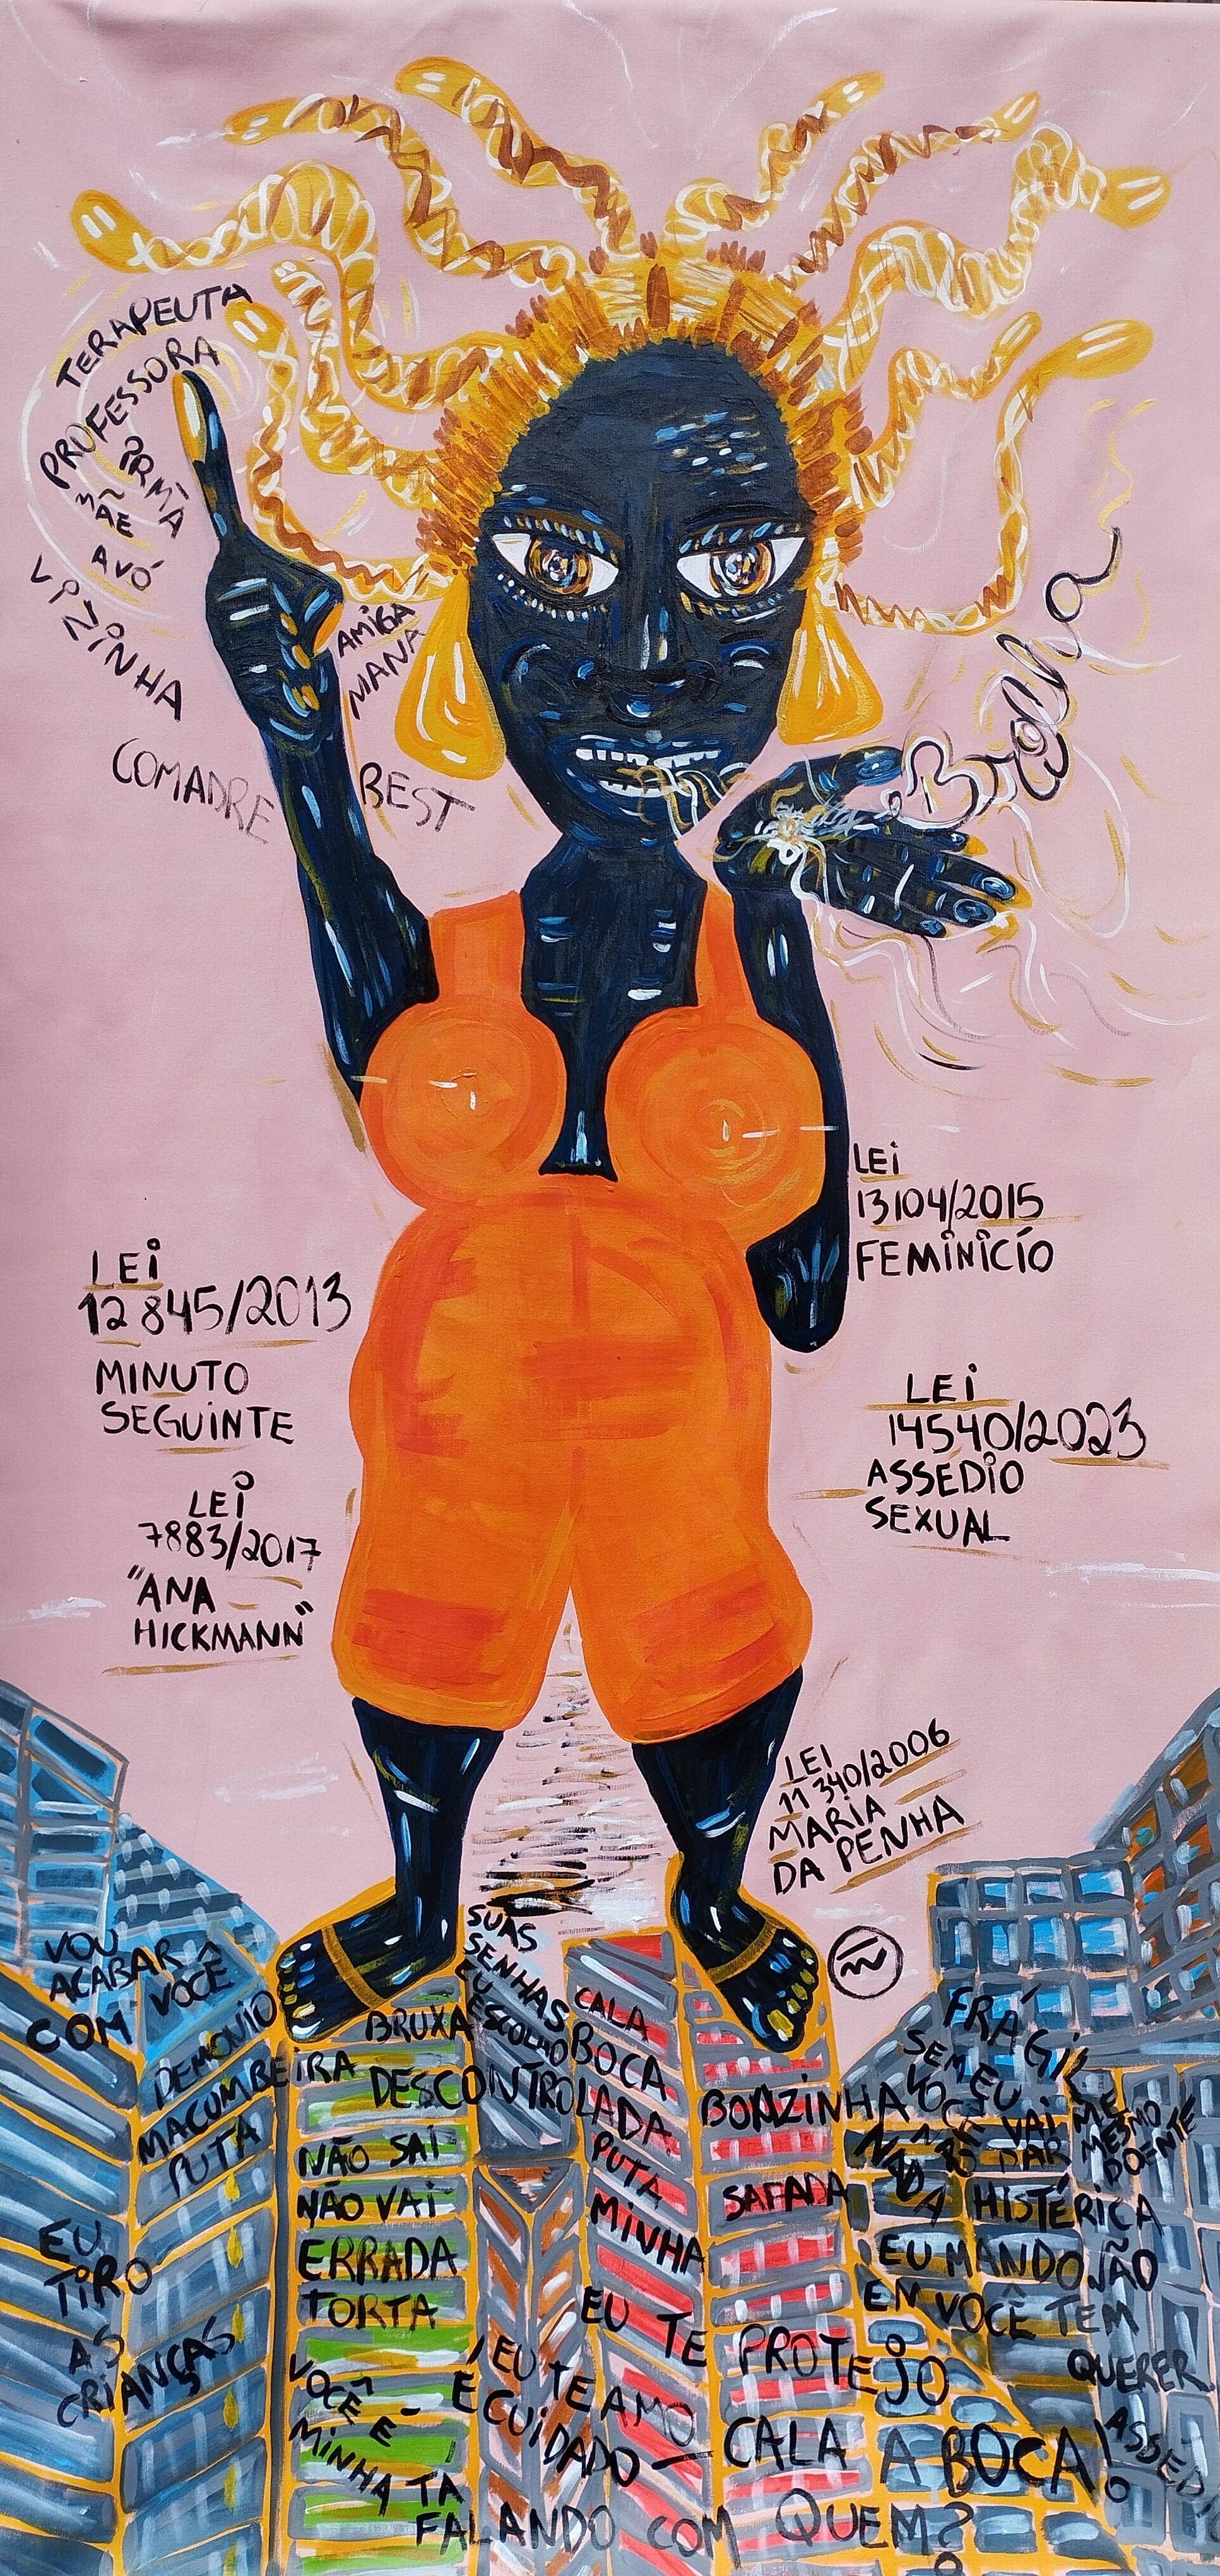 TERAPEUTA
PROFESSORA
IRMÃ
MÃE
AVÓ
VIZINHA
COMADRE
AMIGA
MANA
BEST
LEI
13104/2015
FEMINICÍO
LEI
12845/2013
MINUTO
SEGUINTE
LEI
14540/2023
ASSÉDIO
SEXUAL
LEI
7883/2017
"ANA
HICKMANN"
LEI
11340/2006
MARIA
DA PENHA
VOU
ACABAR
COM VOCÊ
DEMONIO
MACUMBEIRA
PUTA
EU
TIRO
AS
CRIANÇAS
SUAS
SENHAS
EU
ESCOLHO
BRUXA
DESCONTROLADA
NÃO SAI
NÃO VAI
ERRADA
TORTA
VOCÊ É
MINHA
CALA
BOCA
PUTA
MINHA
BOAZINHA
SAFADA
FRÁGIL
SEM EU
VOCÊ
NÃO
NADA
VAI
DAR
ME
MESMO
DOENTE
HISTÉRICA
EU MANDO
EM VOCÊ
NÃO
TEM
QUERER
EU TE PROTEJO
EU TE AMO
É CUIDADO
CALA A BOCA!
TÁ
FALANDO COM QUEM?